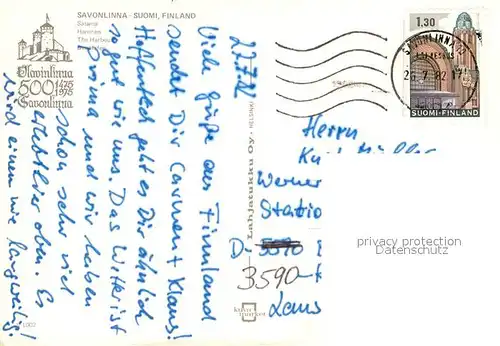 SAVONLINNA - SUOMI, FINLAND
Satama
Hamnen
The Harbour
Olavinlinna
500 1475 1975
Savonlinna
27.7.82
Viele Grüße aus Finnland
sendet Dir Carmen + Klaus!
Hoffentlich geht es Dir ähnlich
so gut wie uns. Das Wetter ist
prima und wir haben
schon sehr viel
erlebt hier oben. Es
wird einem nie langweilig!
Lahjatukku Oy. HELSINKI
1,30
SUOMI-FINLAND
SAVONLINNA
26.7.82.17
Herrn
Werner
Statio
D-5590
3590
privacy protection
Datenschutz